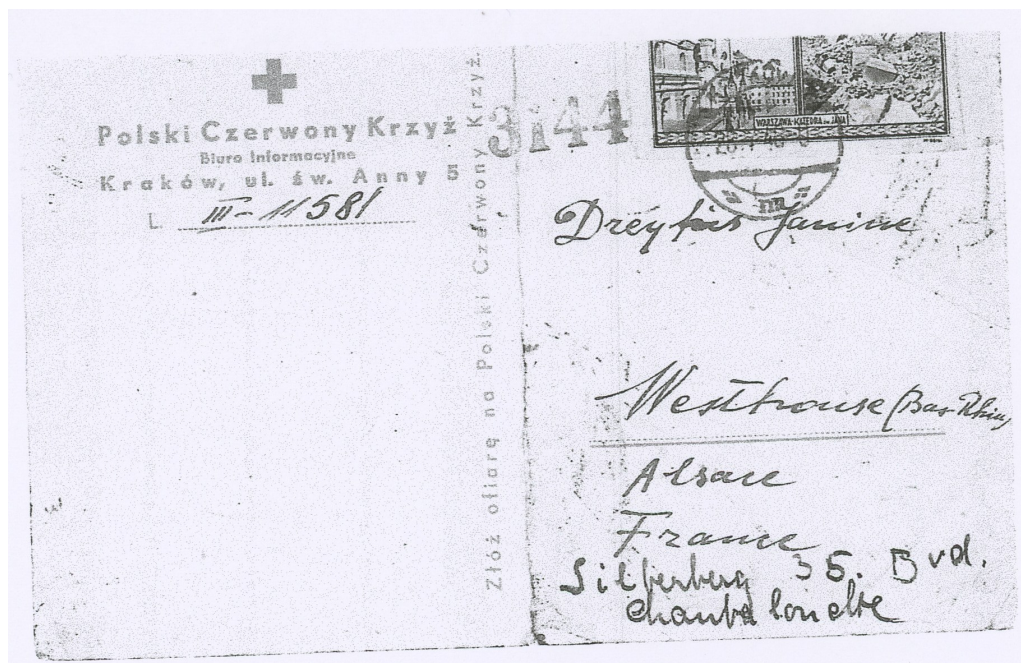 Polski Czerwony Krzyż
Biuro Informacyjne
Kraków, ul. św. Anny 5
L. III-11581
Złóż ofiarę na Polski Czerwony Krzyż.
3144
WARSZAWA-KATEDRA św. JANA
Dreyfus Janine
Westhouse (Bas-Rhin)
Alsace
France
Silberberg 35. Bvd.